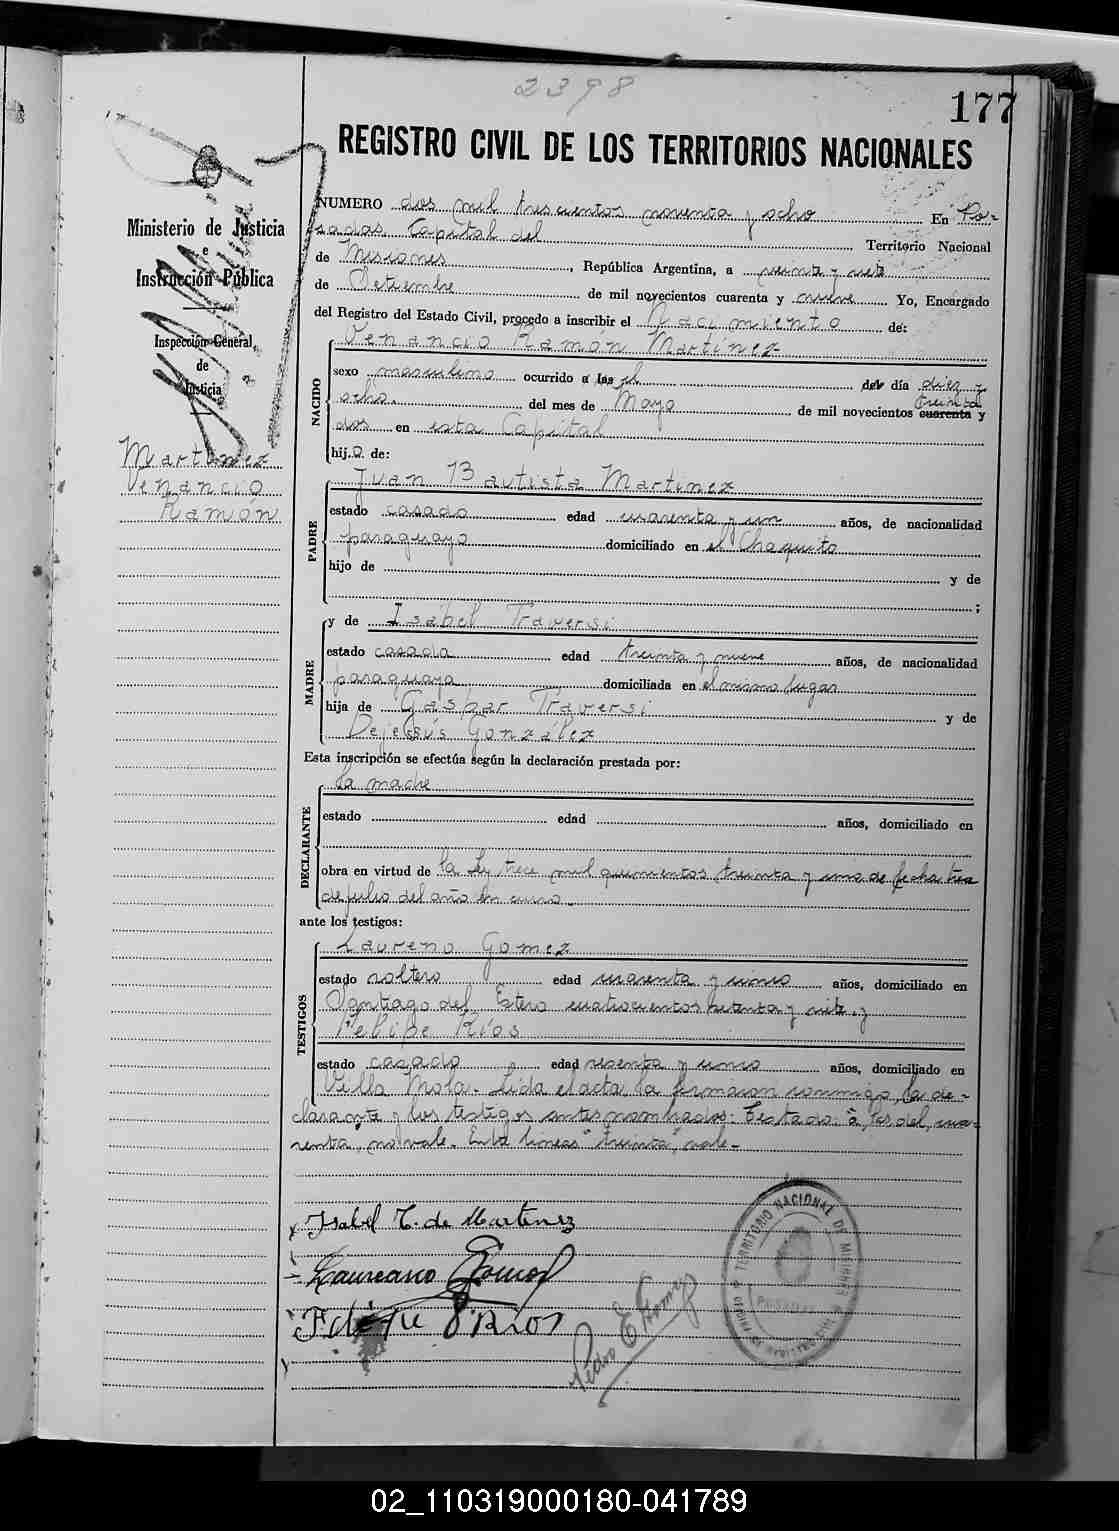 2398
177
REGISTRO CIVIL DE LOS TERRITORIOS NACIONALES
Ministerio de Justicia
e
Instrucción Pública
Inspección General
de
Justicia
Martinez
Venancio
Ramón
NUMERO dos mil trescientos noventa y ocho En Po-
sadas Capital del Territorio Nacional
de Misiones, República Argentina, a veinte y siete
de Setiembre de mil novecientos cuarenta y nueve Yo, Encargado
del Registro del Estado Civil, procedo a inscribir el Nacimiento de:
NACIDO
Venancio Ramón Martinez
sexo masculino ocurrido a las el del día diez y
ocho. del mes de Mayo de mil novecientos cuarenta y
treinta
dos en esta Capital
hij o de:
PADRE
Juan Bautista Martinez
estado casado edad cuarenta y un años, de nacionalidad
paraguayo domiciliado en el Chaquito
hijo de y de
;
MADRE
y de Isabel Traversi
estado casada edad treinta y nueve años, de nacionalidad
paraguaya domiciliada en el mismo lugar
hija de Gaspar Traversi y de
Dejesús González
Esta inscripción se efectúa según la declaración prestada por:
DECLARANTE
la madre
estado edad años, domiciliado en
obra en virtud de la Ley trece mil quinientos treinta y uno de fecha tres
de julio del año en curso.
ante los testigos:
TESTIGOS
Laureno Gomez
estado soltero edad cuarenta y cinco años, domiciliado en
Santiago del Estero cuatrocientos setenta y siete. y
Felipe Ríos
estado casado edad sesenta y cinco años, domiciliado en
Villa Mola. Lida el acta, la firmaron conmigo, la de-
clarante y los testigos antes nombrados: Testado: "a las del, cua-
renta", no vale. Entre lineas "treinta", vale.-
Isabel T. de Martinez
Laureano Gomez
Felipe Rios
Pedro E. Gomez
TERRITORIO NACIONAL DE MISIONES
POSADAS
02_110319000180-041789